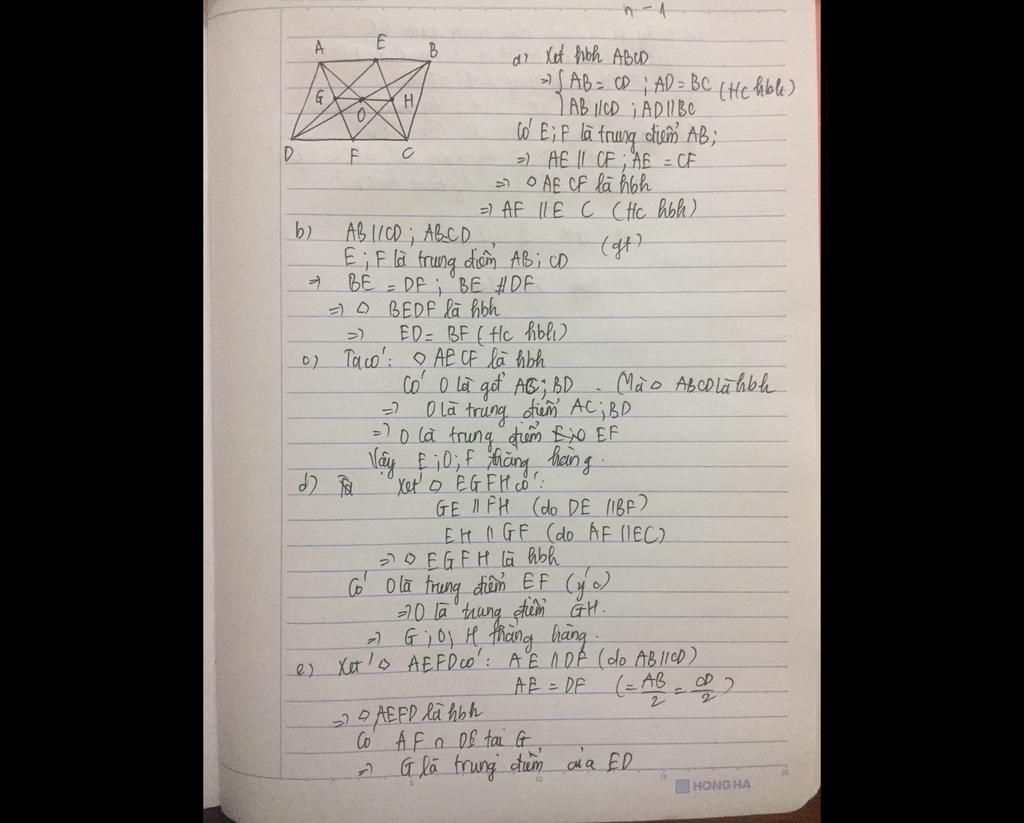 n-1
A E B
G O H
D F C
a) Xét hbh ABCD
=> { AB = CD ; AD = BC (t/c hbh)
AB // CD ; AD // BC
Có E ; F là trung điểm AB ;
=> AE // CF ; AE = CF
=> ◇ AECF là hbh
=> AF // EC (t/c hbh)
b) AB // CD ; AB=CD
(gt)
E ; F là trung điểm AB ; CD
=> BE = DF ; BE // DF
=> ◇ BEDF là hbh
=> ED = BF (t/c hbh)
c) Ta có : ◇ AECF là hbh
Có O là gđ AC ; BD . Mà ◇ ABCD là hbh
=> O là trung điểm AC ; BD
=> O là trung điểm EF
Vậy E ; O ; F thẳng hàng .
d) Xét ◇ EGFH có :
GE // FH (do DE // BF)
EH // GF (do AF // EC)
=> ◇ EGFH là hbh
Có O là trung điểm EF (ý c)
=> O là trung điểm GH .
=> G ; O ; H thẳng hàng .
e) Xét ◇ AEFD có : AE // DF (do AB // CD)
AE = DF (= AB/2 = CD/2)
=> ◇ AEFD là hbh
Có AF ∩ DE tại G
=> G là trung điểm của ED
HONG HA